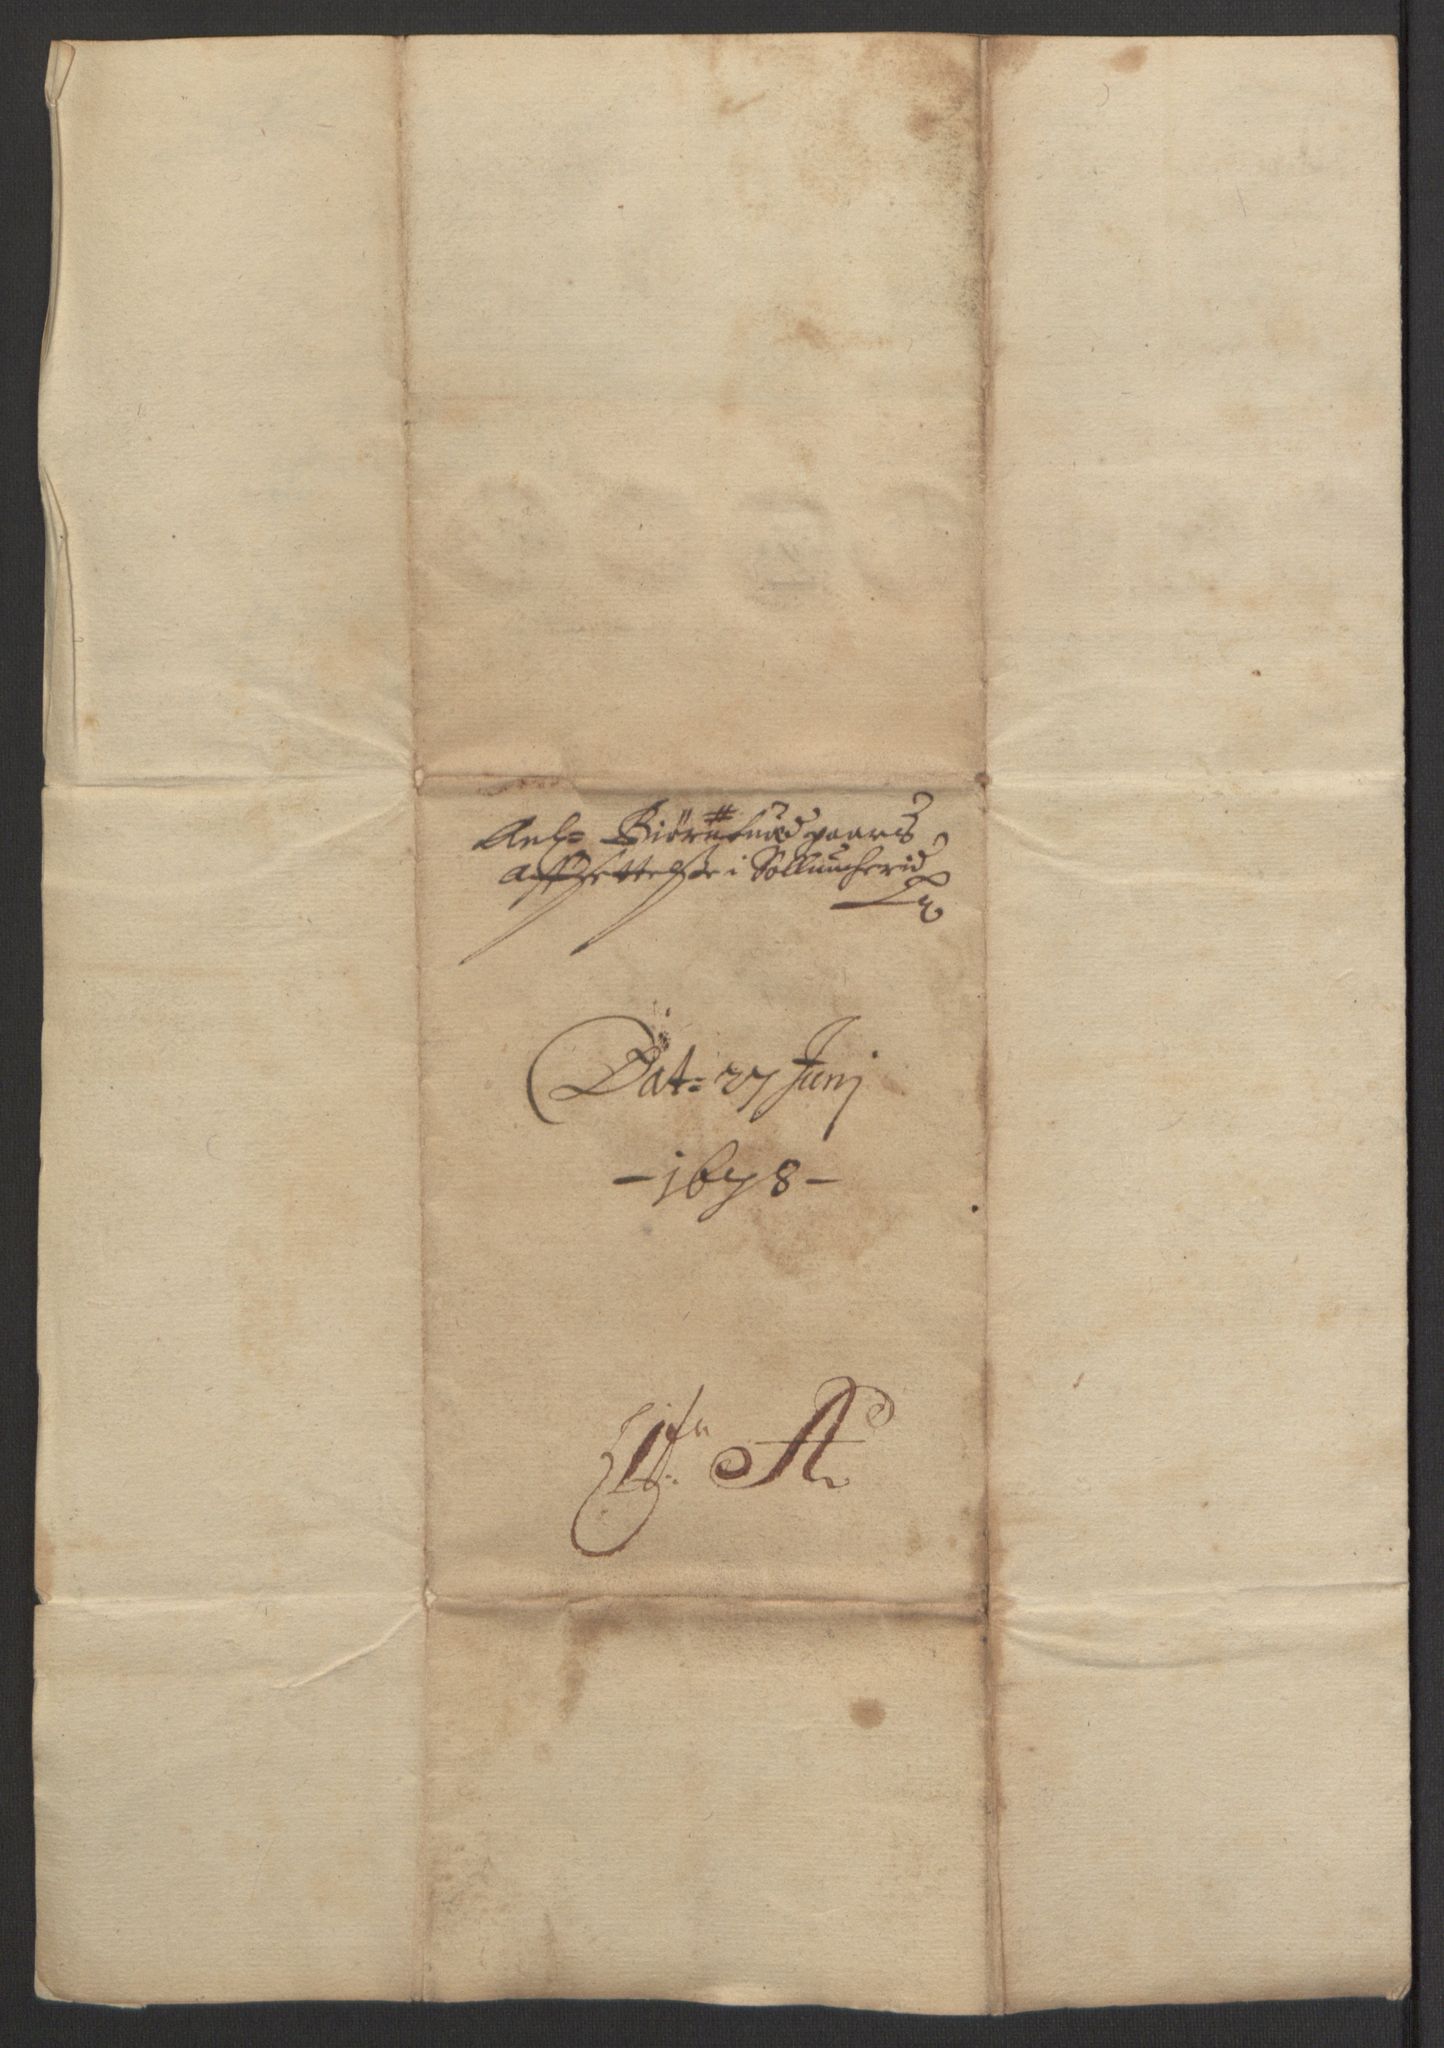 Anl= Biörnesnæd gaards
affsettelsse i Sollumherrid
Dat= 27 Junj
– 1678 –
A